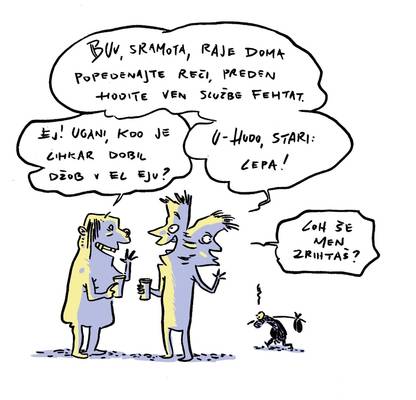 BUU, SRAMOTA, RAJE DOMA
POPEDENAJTE REČI, PREDEN
HODITE VEN SLUŽBE FEHTAT.
EJ! UGANI, KDO JE
LIHKAR DOBIL
DŽOB V EL EJU?
U-HUDO, STARI:
LEPA!
LOH ŠE
MEN
ZRIHTAŠ?